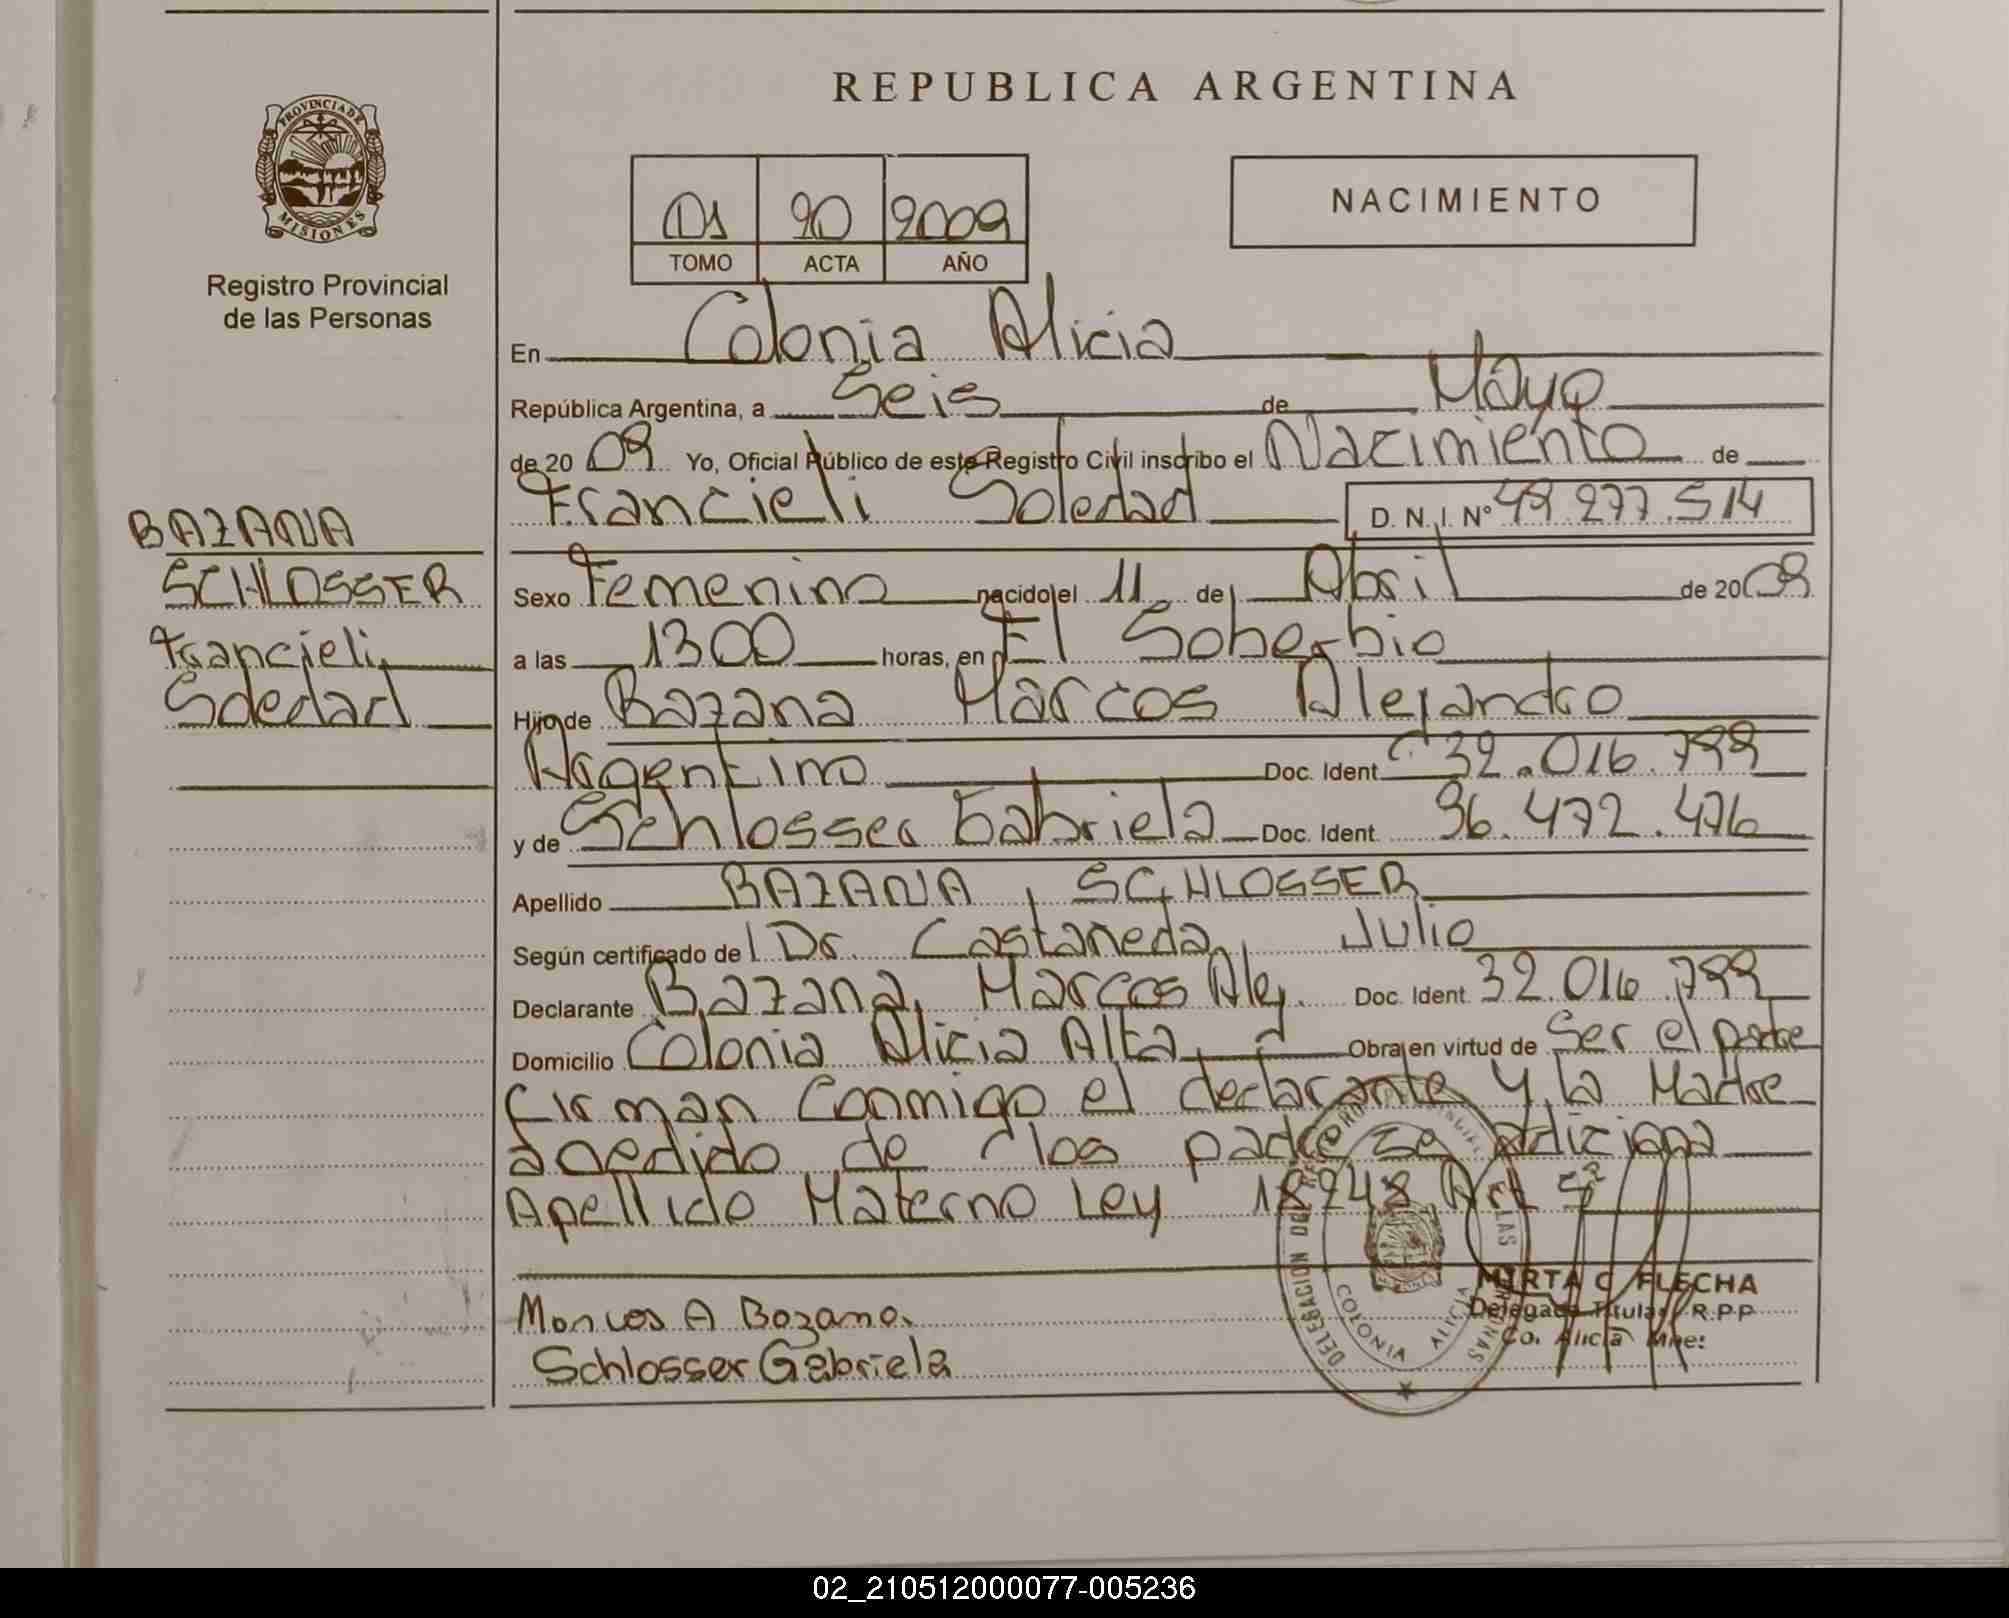 REPUBLICA ARGENTINA
PROVINCIA DE MISIONES
Registro Provincial
de las Personas
01 20 2009
TOMO ACTA AÑO
NACIMIENTO
En Colonia Alicia
República Argentina, a Seis de Mayo
de 20 09 Yo, Oficial Público de este Registro Civil inscribo el Nacimiento de
Francieli Soledad D. N. I. Nº 49.277.514
BAZANA
SCHLOSSER
Francieli
Soledad
Sexo Femenino nacido el 11 de Abril de 2009
a las 1300 horas, en El Soberbio
Hijo de Bazana Marcos Alejandro
Argentino Doc. Ident. 32.016.799
y de Schlosser Gabriela Doc. Ident. 36.472.476
Apellido BAZANA SCHLOSSER
Según certificado de Dr. Castaneda, Julio
Declarante Bazana, Marcos Ale. Doc. Ident. 32.016.799
Domicilio Colonia Alicia Alta Obra en virtud de Ser el padre
firman Conmigo el declarante y la Madre
apedido de los padre se adiciona
Apellido Materno Ley 18248 Art 5º
Marcos A Bozano.
Schlosser Gabriela
MIRTA C. FLECHA
Delegada Titular R.P.P
Co. Alicia Mnes:
COLONIA ALICIA
02_210512000077-005236